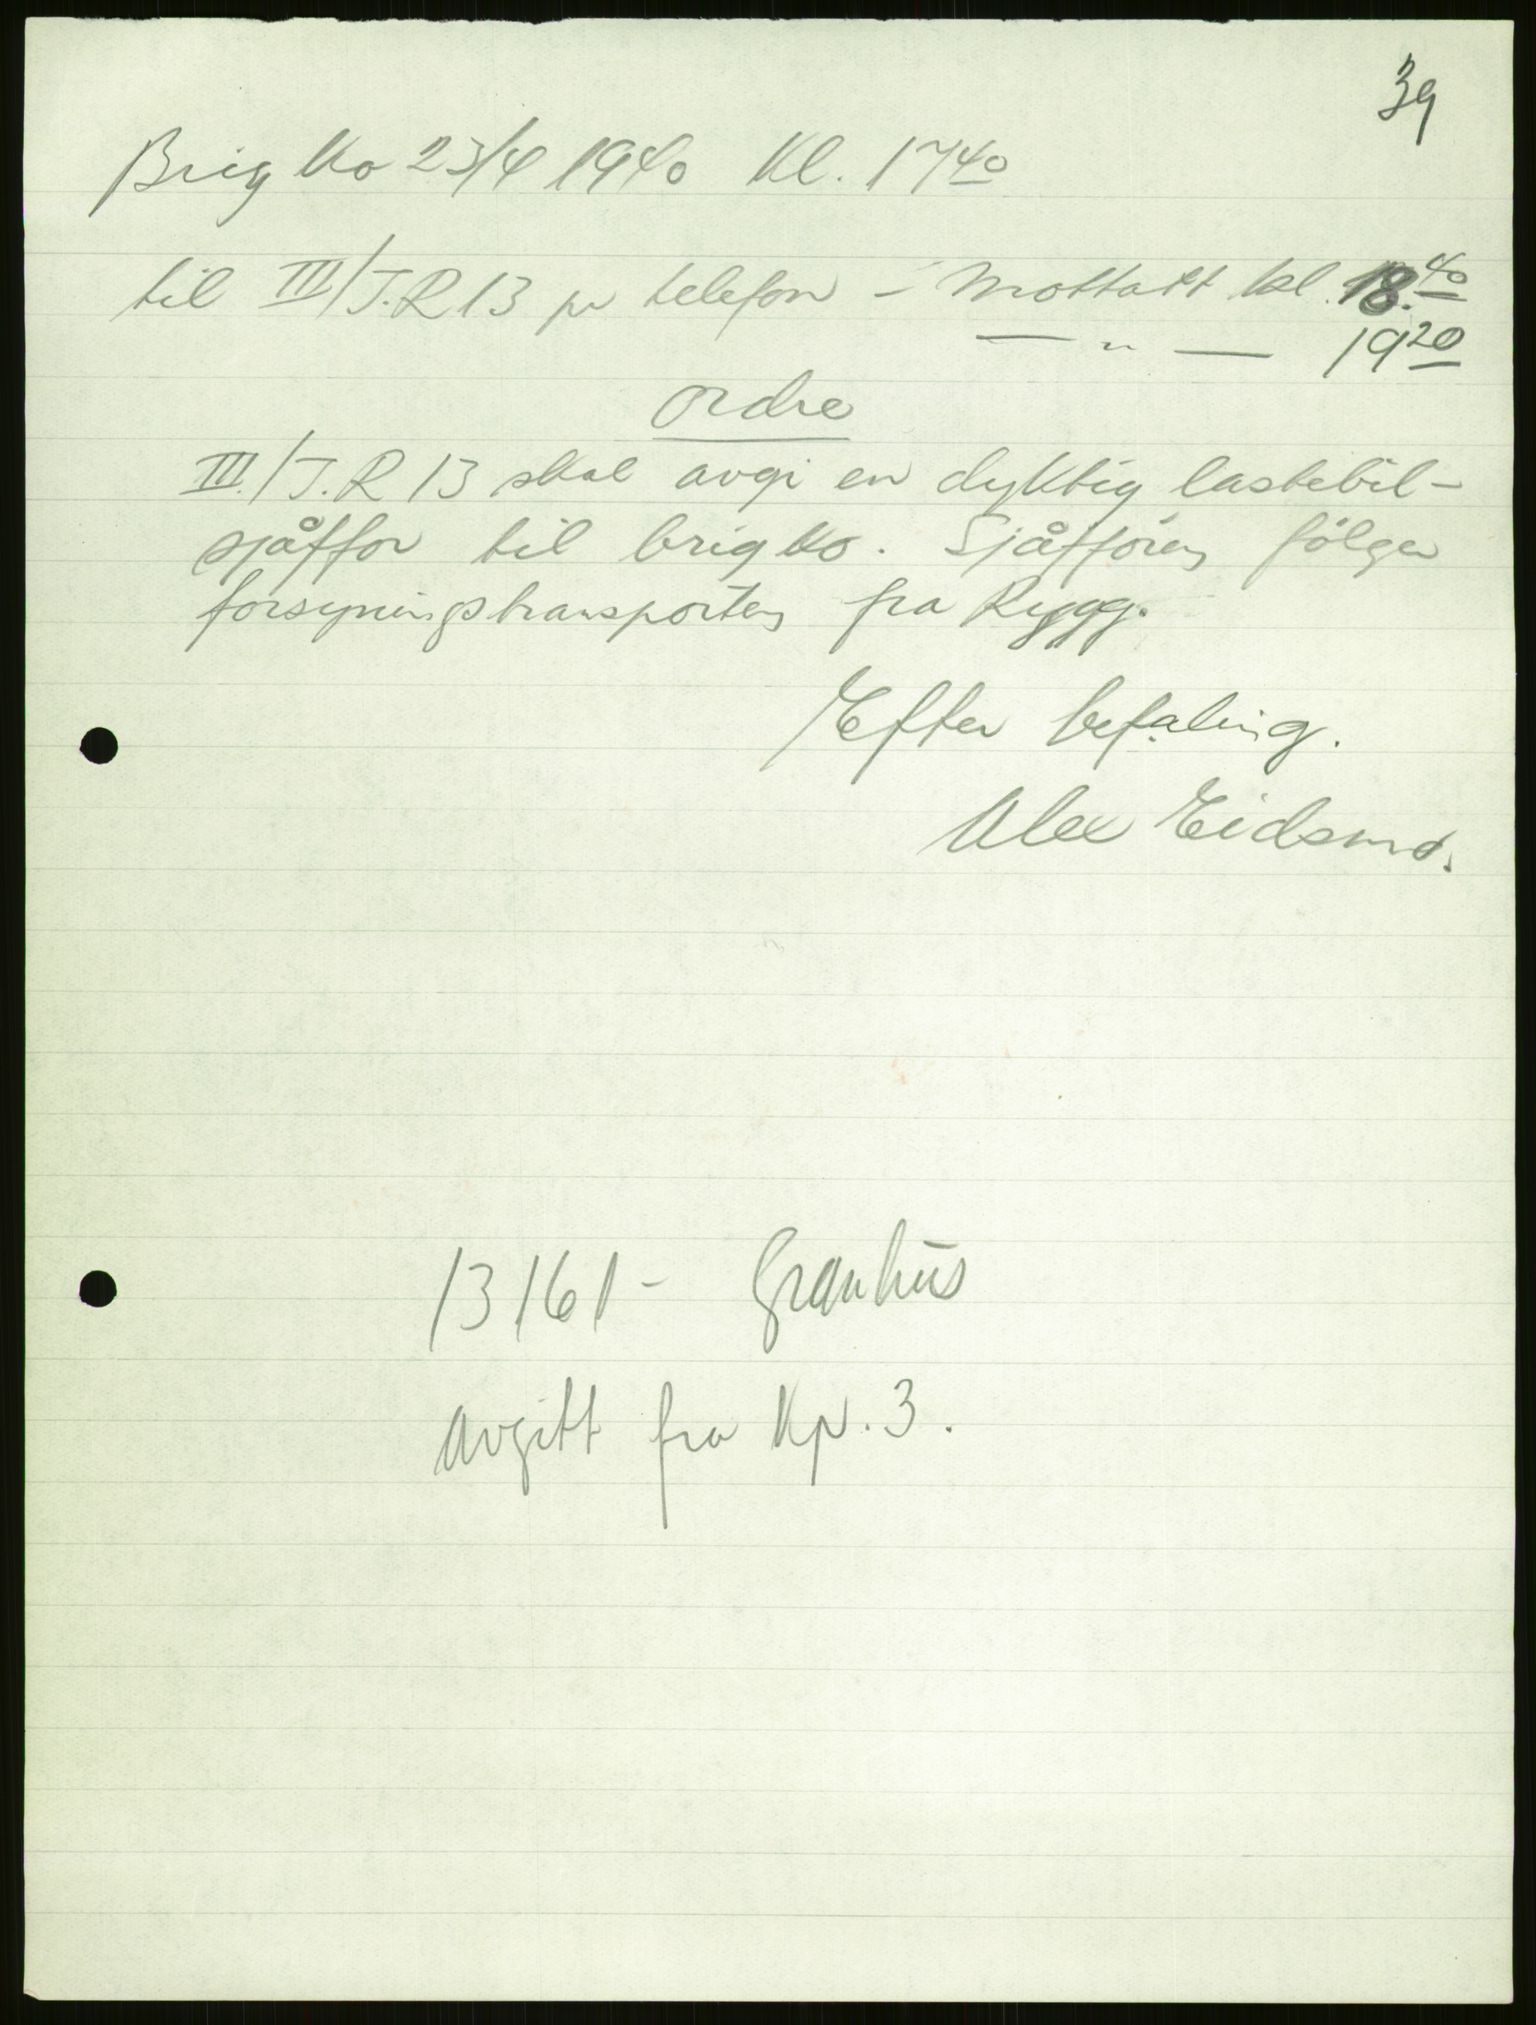 39
Brigko 23/4 1940 Kl. 17⁴⁰
til III/J.R 13 pr telefon – Mottatt kl. 18.⁴⁰
— " — 19²⁰
Ordre
III./J.R 13 skal avgi en dyktig lastebil-
sjåffør til brigko. Sjåfføren følger
forsyningstransporten fra Rygg.
Efter befaling.
Alex Eidsmo.
13161 – Granhus
Avgitt fra Kp. 3.